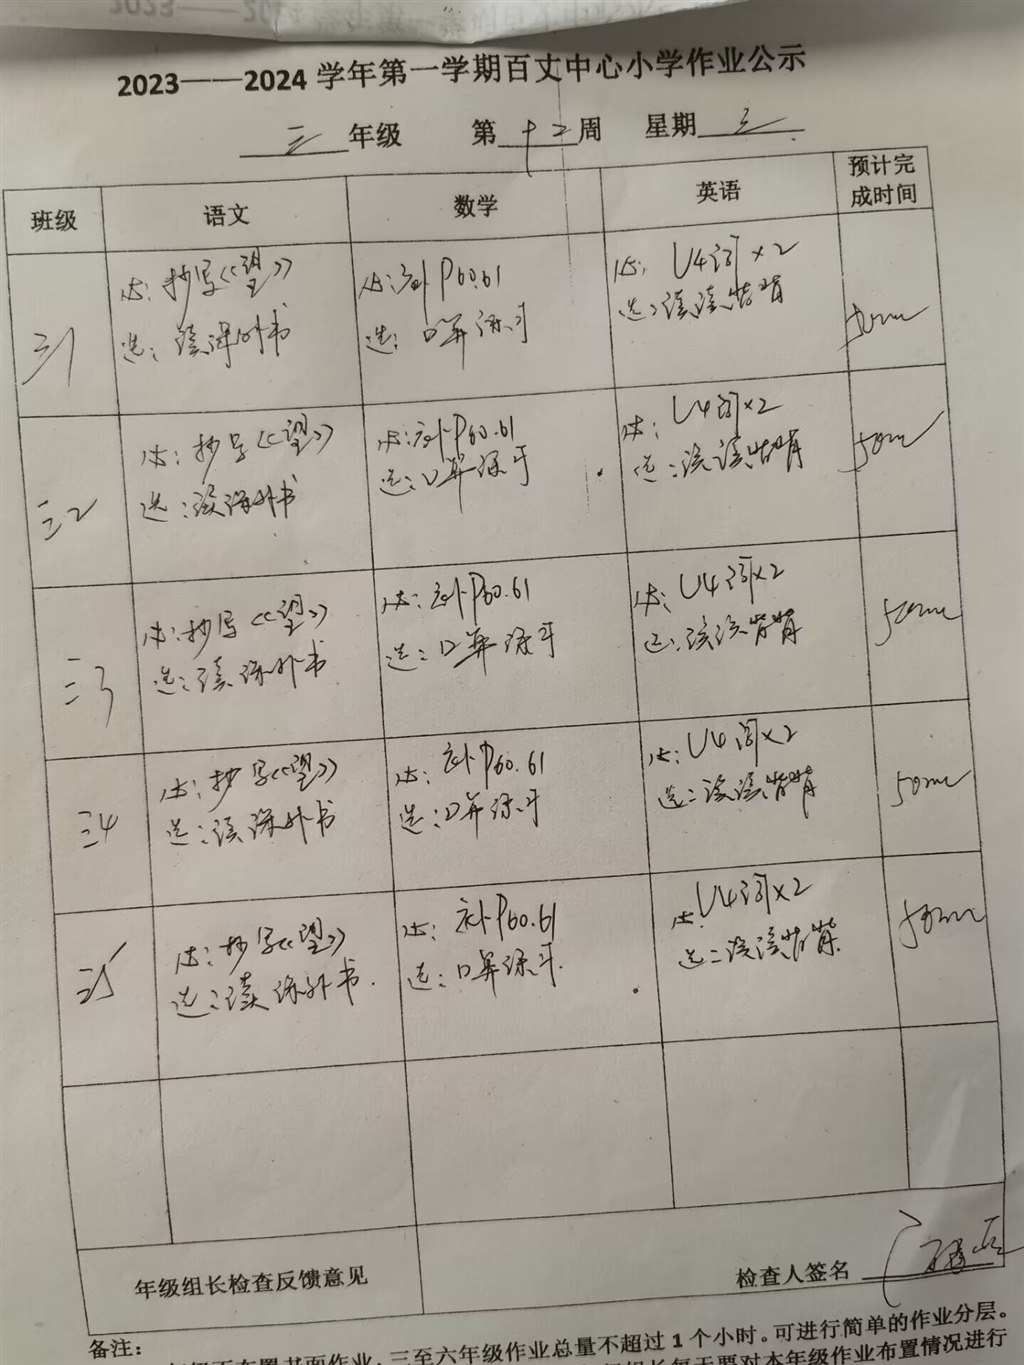 2023——2024 学年第一学期百丈中心小学作业公示
三 年级 第 十二 周 星期 三
班级 语文 数学 英语 预计完成时间
三1
必: 抄写《望》
选: 读课外书
必: 补P60.61
选: 口算练习
必: U4词×2
选: 读读背背
50m
三2
必: 抄写《望》
选: 读课外书
必: 补P60.61
选: 口算练习
必: U4词×2
选: 读读背背
50m
三3
必: 抄写《望》
选: 读课外书
必: 补P60.61
选: 口算练习
必: U4词×2
选: 读读背背
50m
三4
必: 抄写《望》
选: 读课外书
必: 补P60.61
选: 口算练习
必: U4词×2
选: 读读背背
50m
三5
必: 抄写《望》
选: 读课外书.
必: 补P60.61
选: 口算练习.
必: U4词×2
选: 读读背背.
50m
年级组长检查反馈意见
检查人签名
备注:
布置书面作业,三至六年级作业总量不超过 1 个小时。可进行简单的作业分层。
组长每天要对本年级作业布置情况进行